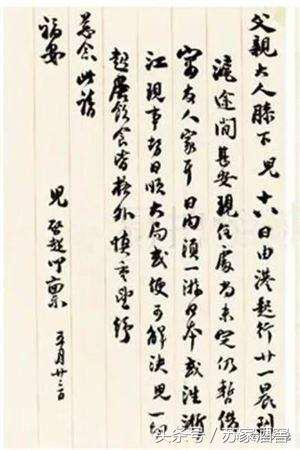 父親大人膝下兒十八日由港起行廿一晨到
滬途間甚安現住處尚未定仍暫借
寓友人家耳日內須一游日本或往浙
江現事勢日順大局或便可解決兒一切
起居飲食皆格外慎重望紓
慈念此請
福安
兒啟超叩稟 五月廿二日
头条号 / 苏家酒窖